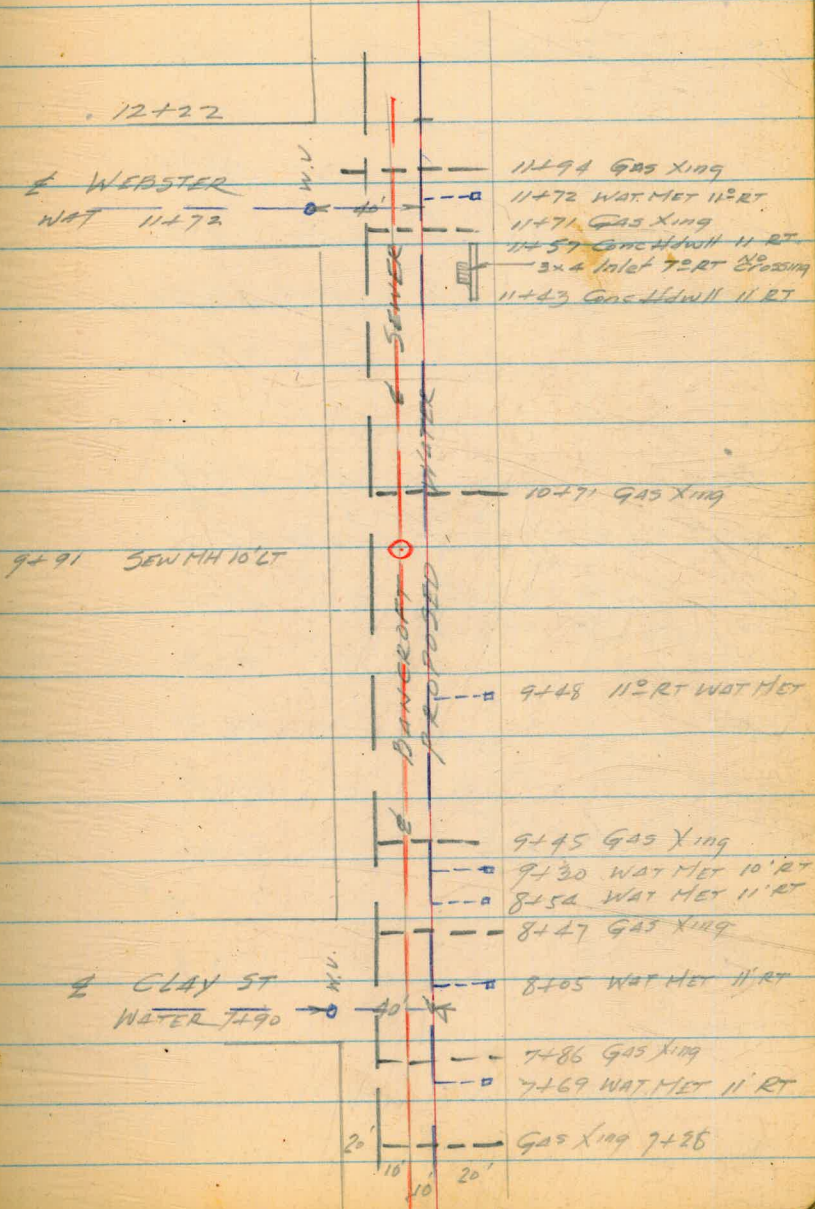 12+22
W.V.
11+94 Gas Xing
℄ WEBSTER
11+72 WAT. MET 11° RT
WAT 11+72
40'
11+71 Gas Xing
11+57 Conc Hdwll 11' RT
3x4 Inlet 7° RT No Crossing
11+43 Conc Hdwll 11' RT
℄ SEWER
WATER
10+71 Gas Xing
9+91 SEW MH 10' LT
℄ BANCROFT
PROPOSED
9+48 11° RT WAT MET
9+45 Gas Xing
9+30 WAT MET 10' RT
8+54 WAT MET 11' RT
8+47 GAS Xing
W.V.
℄ CLAY ST
8+05 WAT MET 11' RT
WATER 7+90
40'
7+86 Gas Xing
7+69 WAT MET 11' RT
20'
Gas Xing 7+28
10'
10'
20'